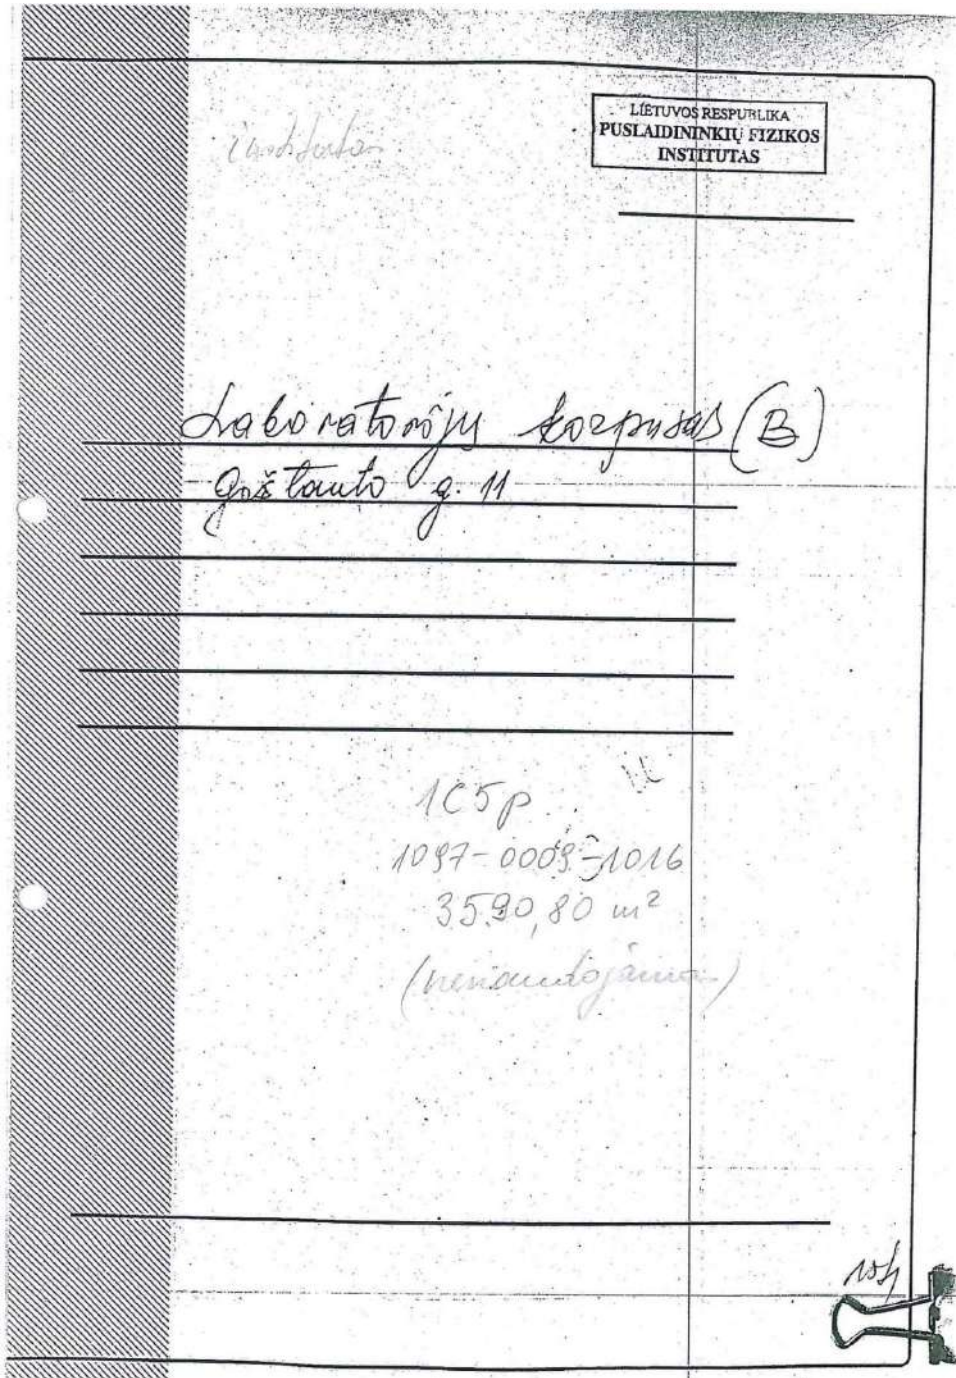 LIETUVOS RESPUBLIKA
PUSLAIDININKIŲ FIZIKOS
INSTITUTAS
institutas
Laboratorijų korpusas (B)
Goštauto g. 11
1C5p
1097-0009-1016
3590,80 m²
(nenaudojamas)